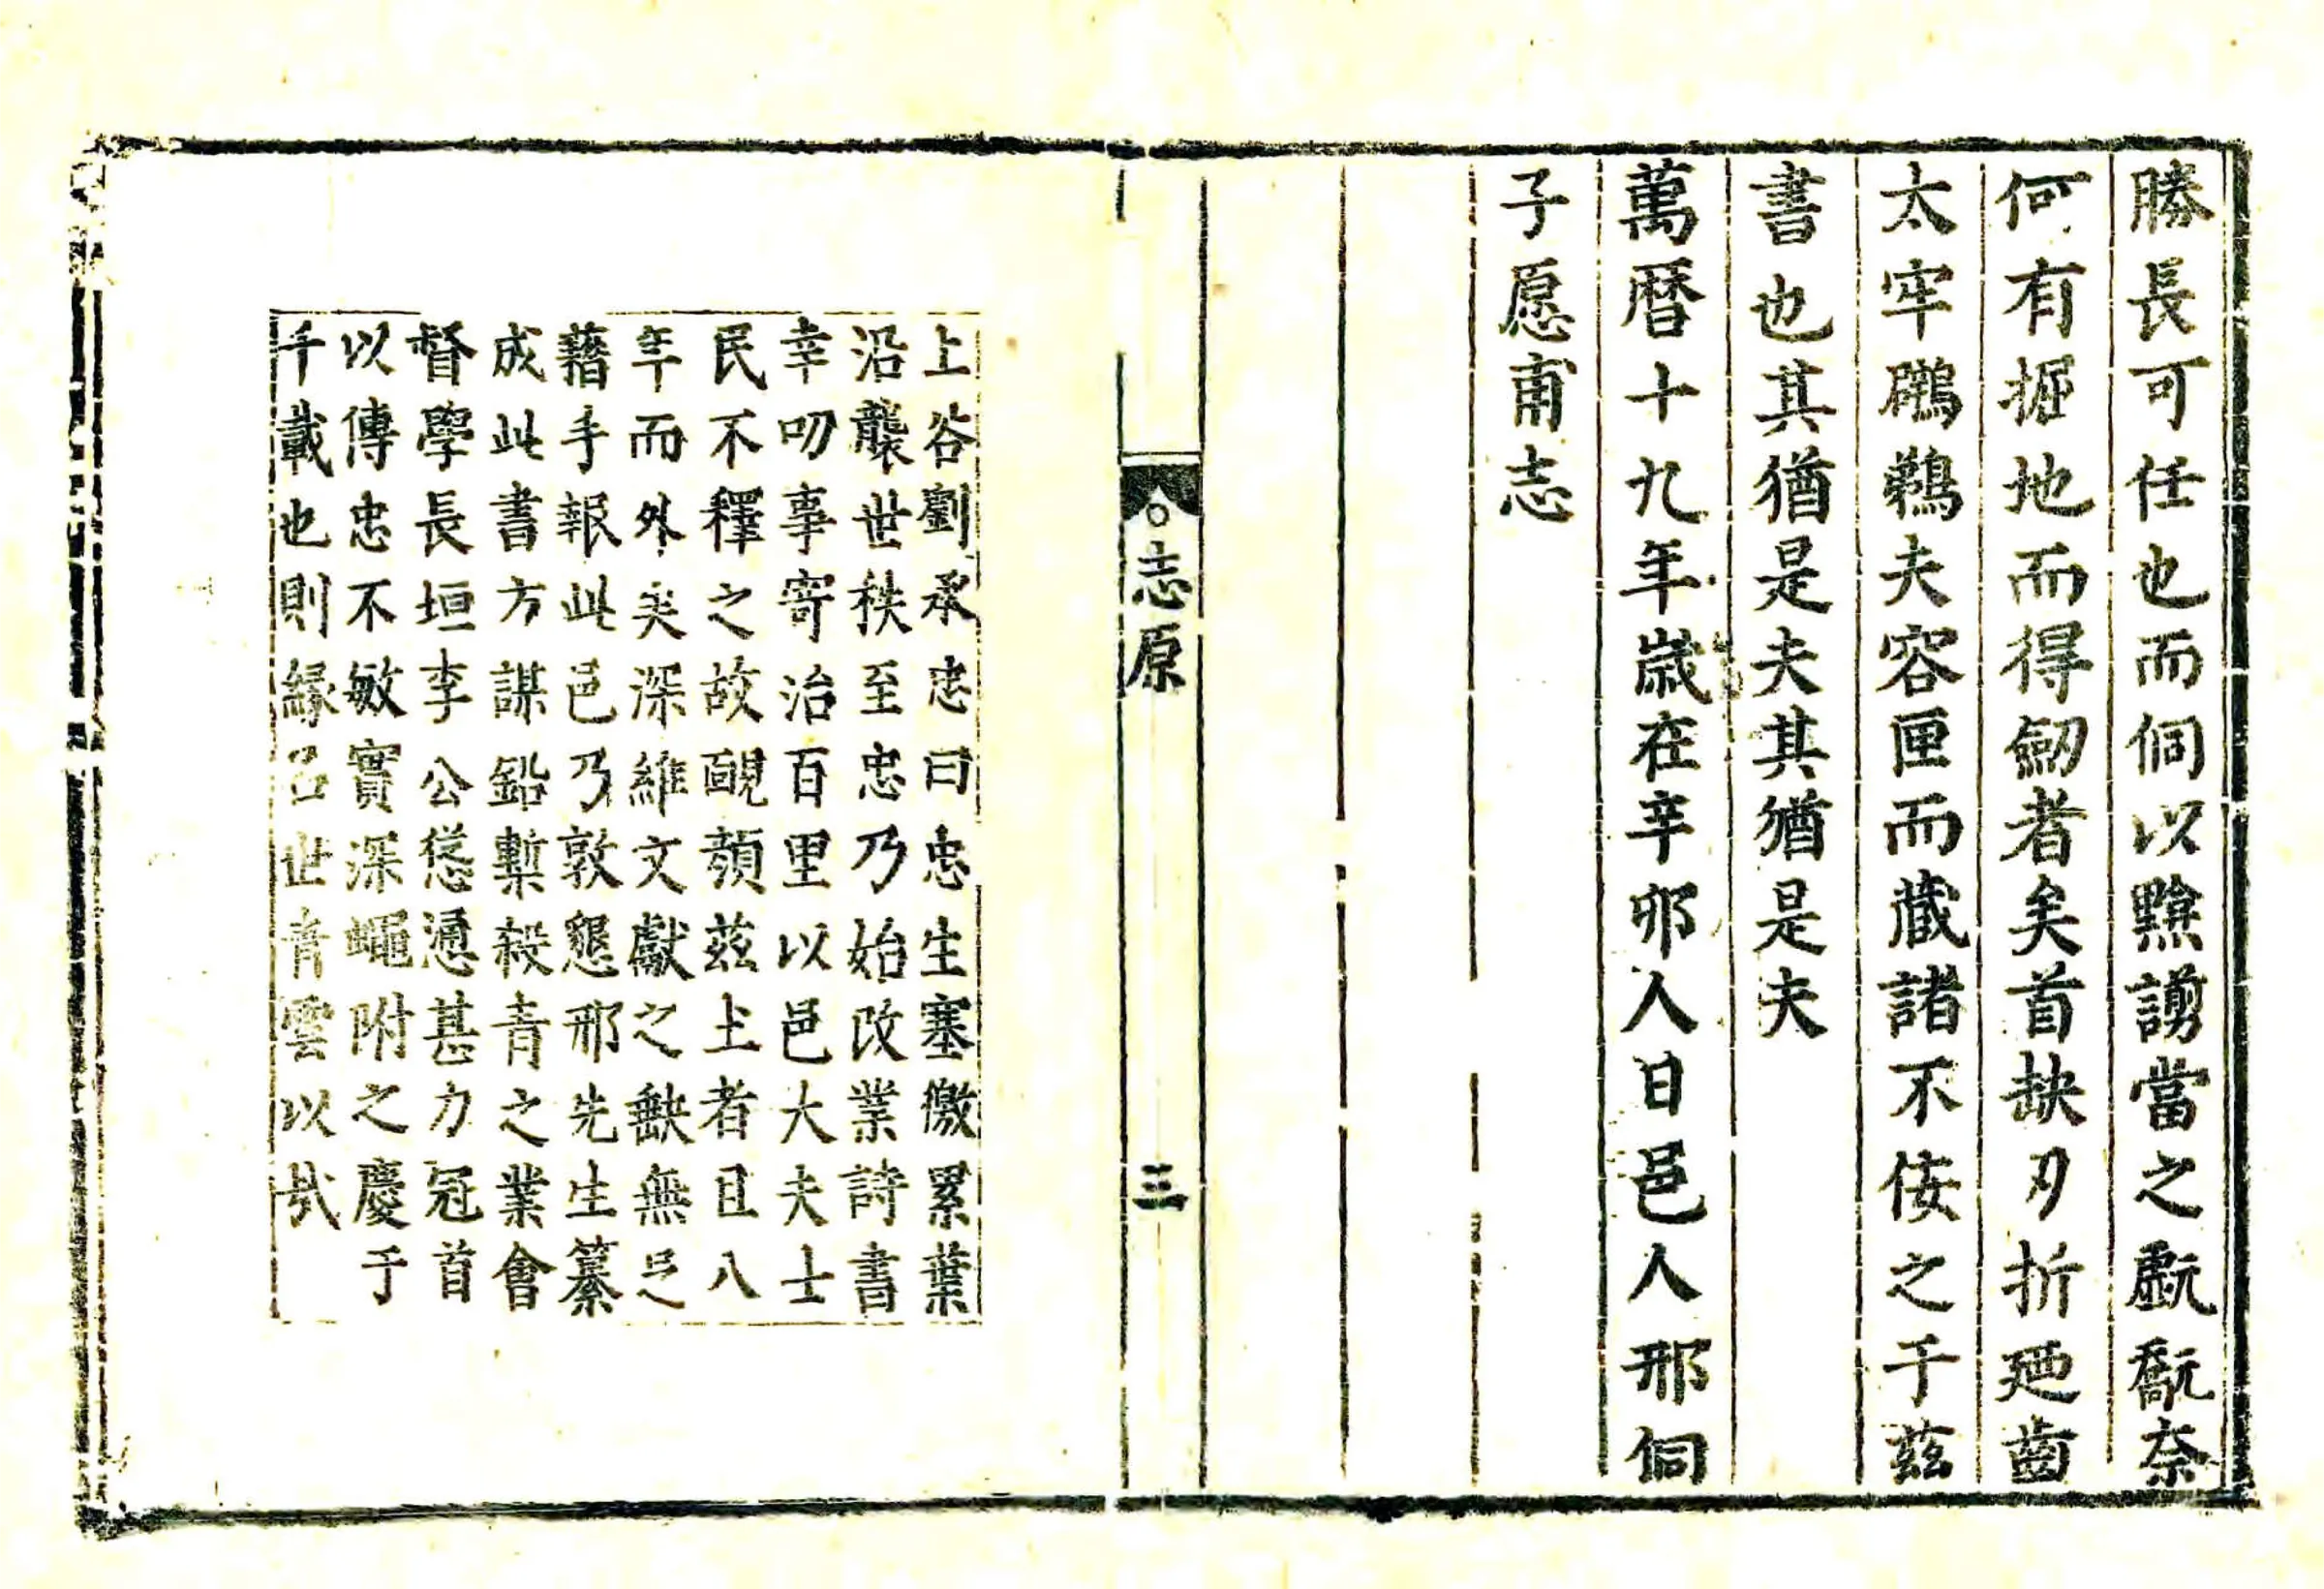 勝長可任也而侗以黥謭當之虧翫奈
何有掘地而得劒者矣首缺刃折廼齒
太牢礪鵜夫容匣而藏諸不佞之于茲
書也其猶是夫其猶是夫
萬曆十九年歲在辛夘人日邑人邢侗
子愿甫志
志原
三
上谷劉承忠曰忠生塞徼累葉
沿襲世秩至忠乃始改業詩書
幸叨事寄治百里以邑大夫士
民不釋之故靦顏茲土者且八
年而外矣深維文獻之缺無足
藉手報此邑乃敦懇邢先生纂
成此書方謀鉛槧殺青之業會
督學長垣李公慫慂甚力冠首
以傳忠不敏實深蠅附之慶于
千載也則緣名世青雲以哉